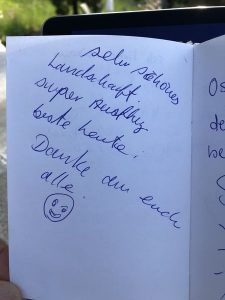 sehr schönes
Landschaft.
super Ausflug
biste heute!
Danke an euch
alle!
Os
de
be